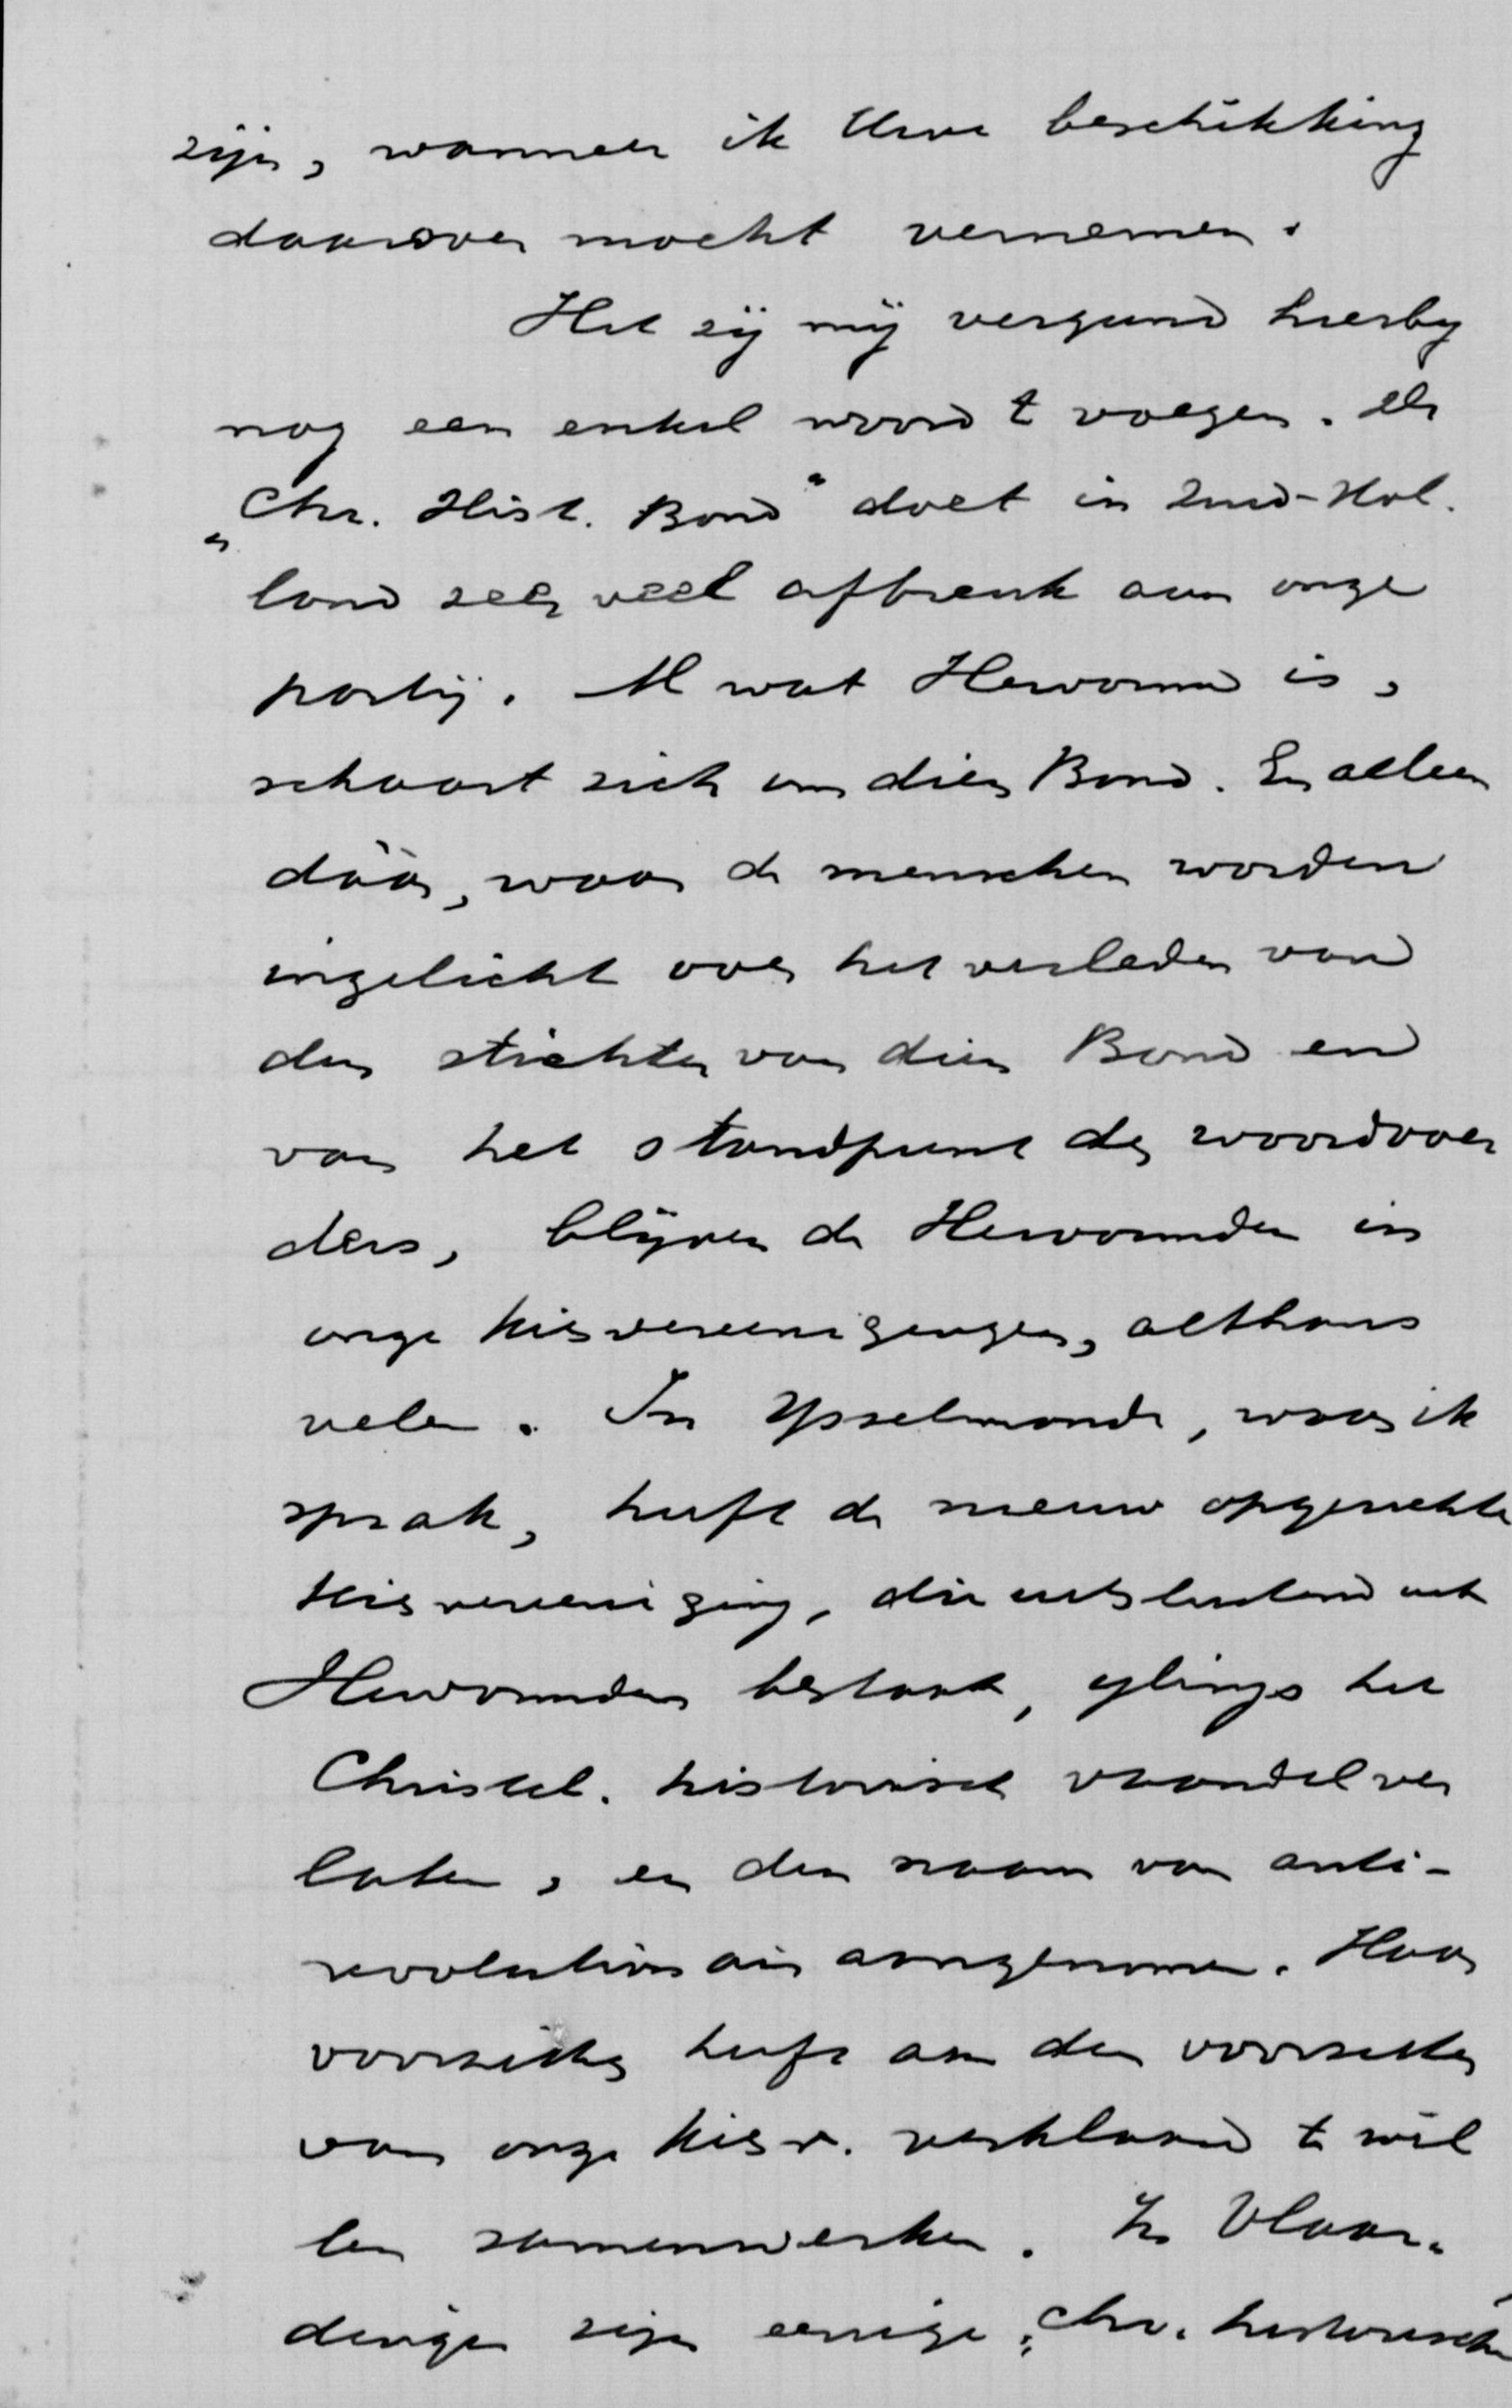 zijn, wanneer ik Uwe beschikking
daarover mocht vernemen.
Het zij mij vergund hierbij
nog een enkel woord te voegen. De
„Chr. Hist. Bond" doet in Zuid-Hol.
land zeer veel afbreuk aan onze
partij. Al wat Hervormd is,
schaart zich om dien Bond. En alleen
dáár, waar de menschen worden
ingelicht over het verleden van
den stichter van dien Bond en
van het standpunt der woordvoer
ders, blijven de Hervormden in
onze kiesvereenigingen, althans
velen. In IJsselmonde, waar ik
sprak, heeft de nieuw opgerichte
kiesvereeniging, die uitsluitend uit
Hervormden bestaat, ijlings het
Christel. historisch vaandel ver
laten, en den naam van anti-
revolutionair aangenomen. Haar
voorzitter heeft aan den voorzitter
van onze kiesv. verklaard te wil
len samenwerken. In Vlaar.
dingen zijn eenige „chr. historische